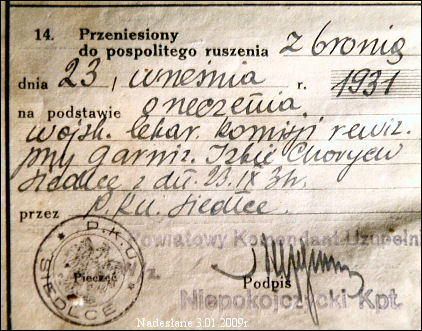 14. Przeniesiony
do pospolitego ruszenia z bronią
dnia 23 września r. 1931
na podstawie orzeczenia
wojsk. lekar. komisji rewiz.
przy garniz. Izbie Chorych
Siedlce z dn. 23.IX 31r.
przez P.K.U. Siedlce.
P.K.U.
SIEDLCE
Pieczęć
Powiatowy Komendant Uzupełn
Wz.
Podpis
Niepokojczycki Kpt.
Nadesłane 3.01.2009r